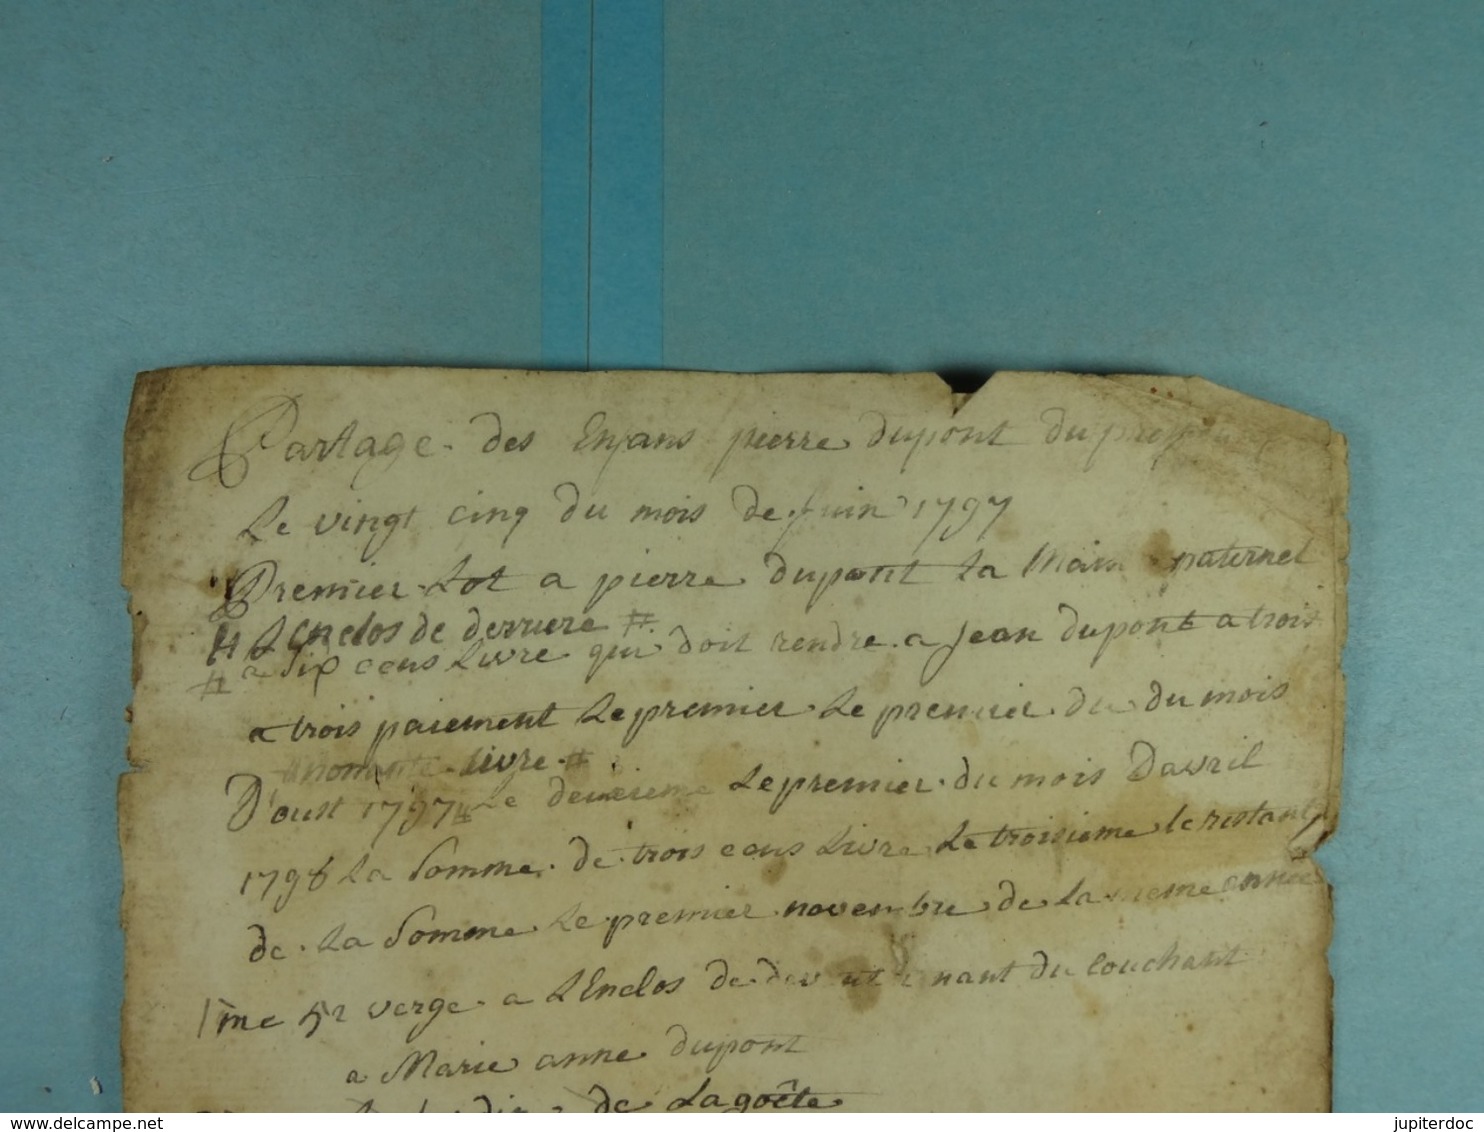 Partage des Enfans pierre dupont du
Le vingt cinq du mois de Juin 1797
Premier Lot a pierre dupont La Main paternel
# L Enclos de derriere #
# a six cens Livre qui doit rendre a Jean dupont a trois
a trois paiement Le premier Le premier du du mois
Livre #
D'oust 1797 # Le deuxieme Le premier du mois Davril
1798 La Somme de trois cens Livre Le troisieme le restant
de La Somme Le premier novembre de La meme année
1me 52 verge a L Enclos de devant tenant du couchant
a Marie anne dupont
de Lagoête
jupiterdoc